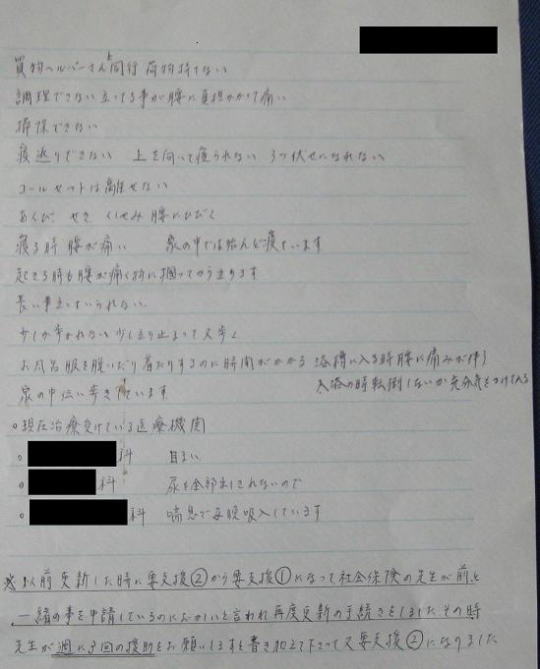 買物ヘルパーさんと同行 荷物持てない
調理できない 立ってる事が腰に負担かかって痛い
掃除できない
寝返りできない 上を向いて寝られない うつ伏せになれない
コールセットは離せない
あくび せき くしゃみ 腰にひびく
寝る時腰が痛い 家の中では殆んど寝ています
起きる時も腰が痛く物に掴ってから立ちます
長い事立っていられない
少ししか歩かれない 少し立り止まって又歩く
お風呂服を脱いだり着たりするのに時間がかかる 浴槽に入る時腰に痛みが伴う
家の中伝い歩きしています 入浴の時転倒しないか充分気をつけている
○現在治療受けている医療機関
○ 科 目まい
○ 科 尿を全部出しきれないので
○ 科 喘息で毎晩吸入しています
※以前更新した時に要支援②から要支援①になって社会保険の先生が前と
一緒の事を申請しているのにおかしいと言われ再度更新の手続きをしました その時
先生が週に3回の援助をお願いしますと書き加えて下さって又要支援②になりました